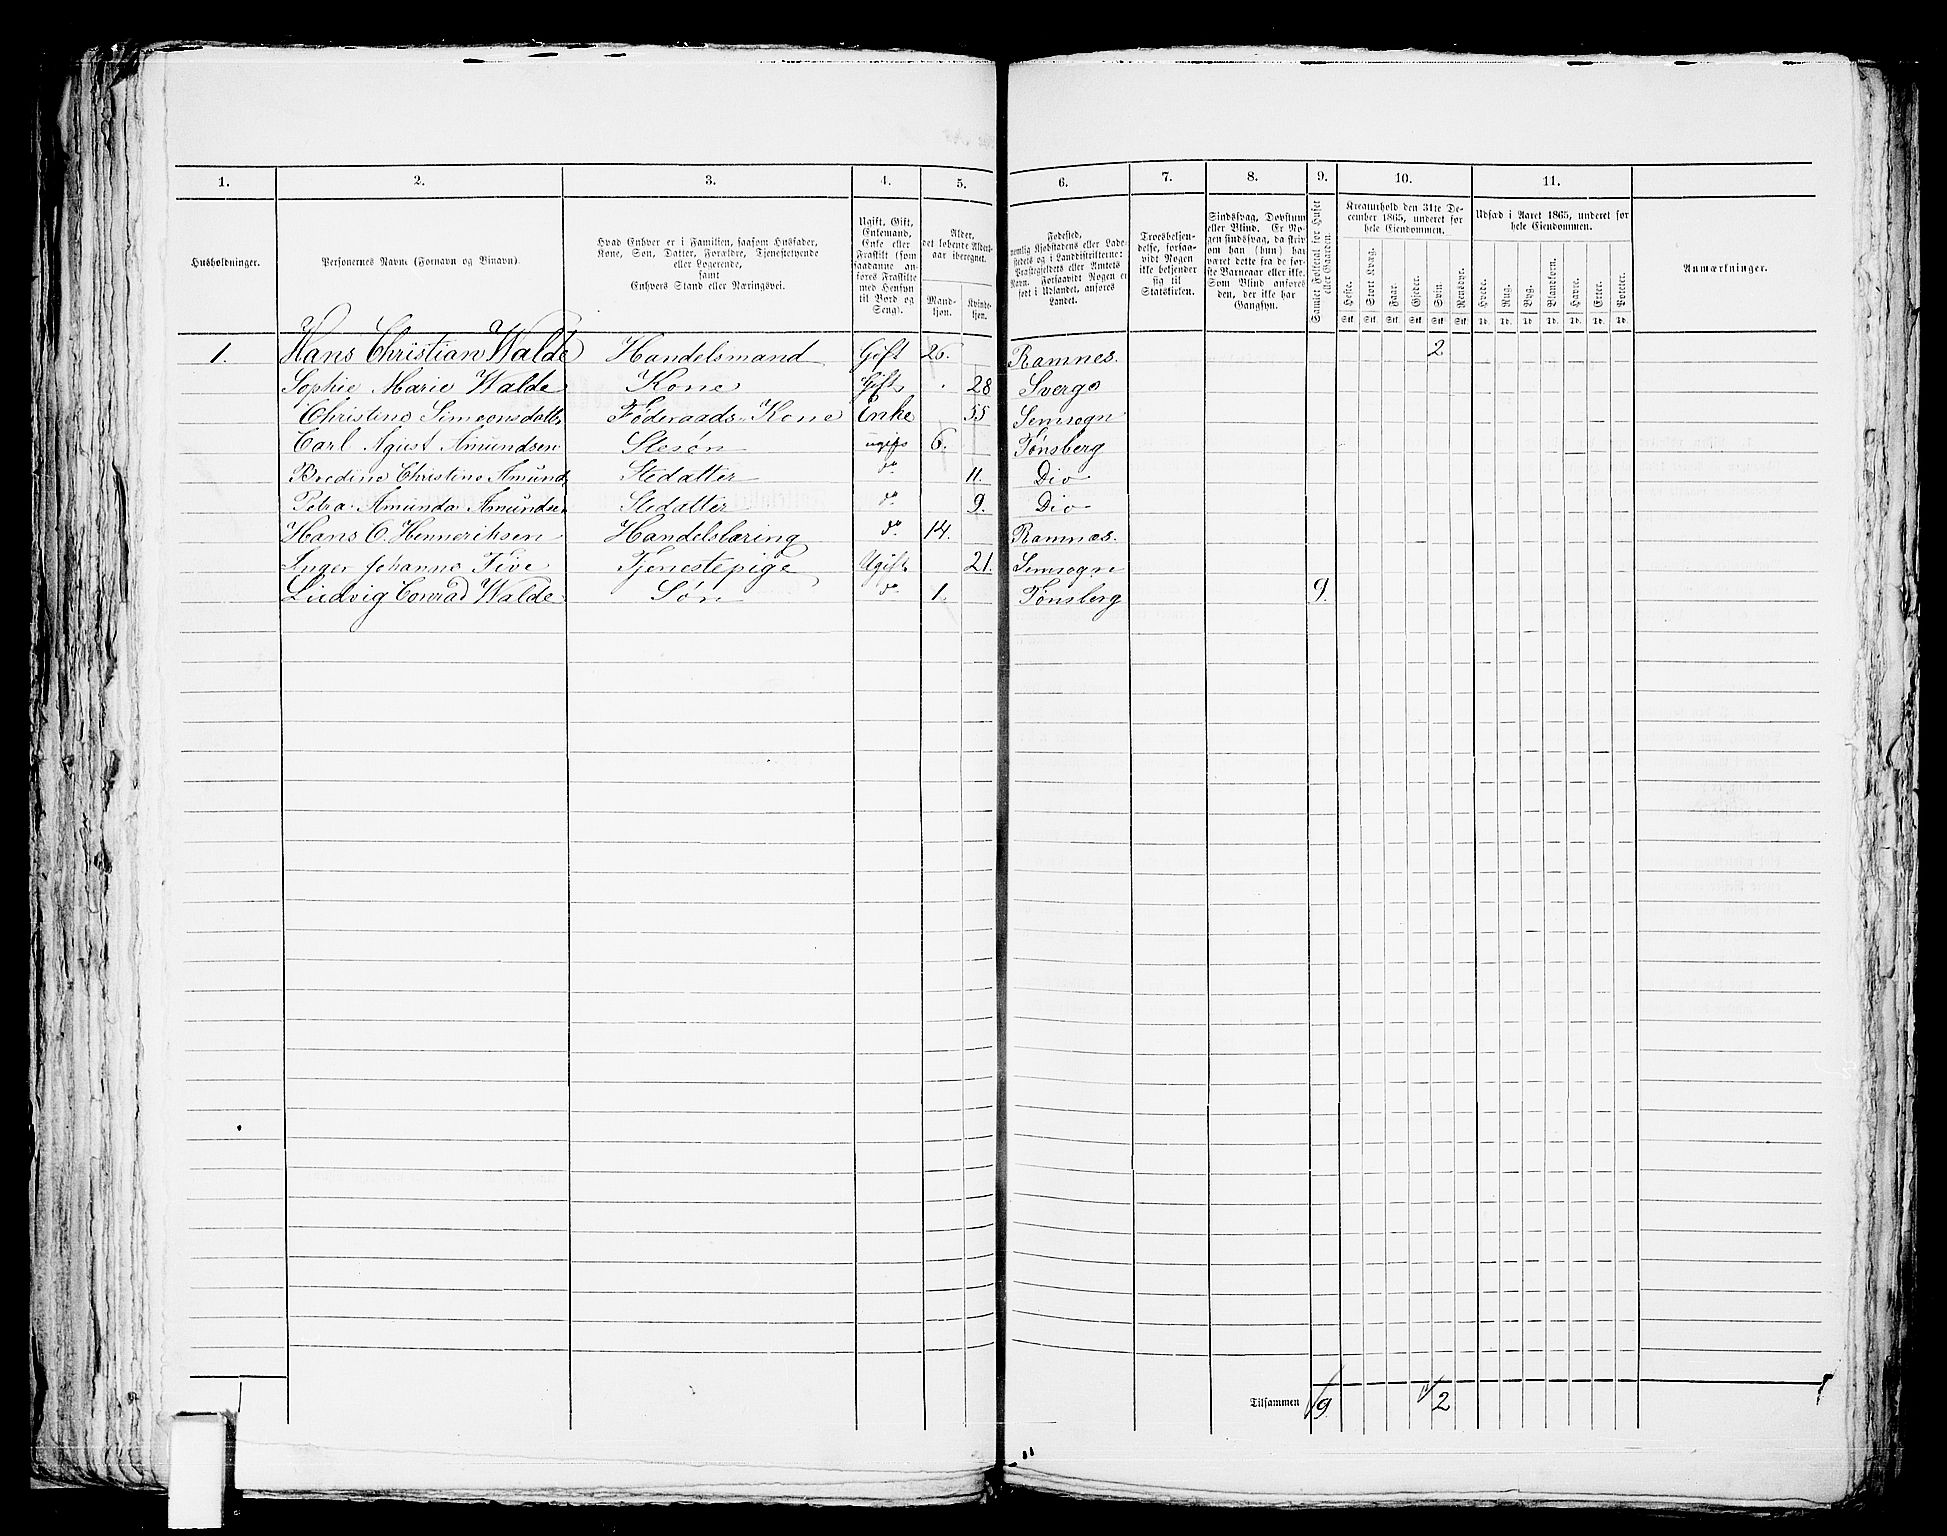 1. 2. 3. 4. 5. 6. 7. 8. 9. 10. 11.
Husholdninger.
Personernes Navne (Fornavn og Binavn).
Hvad Enhver er i Familien, saasom Husfader,
Kone, Søn, Datter, Forældre, Tjenestetyende
eller Logerende,
samt
Enhvers Stand eller Næringsvei.
Ugift, Gift,
Enkemand,
Enke eller
Fraskilt (som
saadanne an-
føres Fraskilte
med Hensyn
til Bord og
Seng).
Alder,
det løbende Alders-
aar iberegnet.
Mand-
kjøn.
Kvinde-
kjøn.
Fødested,
nemlig Kjøbstadens eller Lade-
stedets og i Landdistrikterne:
Præstegjeldets eller Amtets
Navn. Forsaavidt Nogen er
født i Udlandet, anføres
Landet.
Troesbekjen-
delse, forsaa-
vidt Nogen
ikke bekjender
sig til
Statskirken.
Sindssvag, Døvstum
eller Blind. Er No-
gen sindssvag, da skriv
om han (hun) har
været dette fra de før-
ste Barneaar eller ikke.
Som Blind anføres
den, der ikke har
Gangsyn.
Samlet Folketal for Huset
eller Gaarden.
Kreaturhold den 31te De-
cember 1865, underet for
hele Eiendommen.
Heste. Stort Kvæg. Faar. Gjeder. Svin. Rensdyr.
Stk. Stk. Stk. Stk. Stk. Stk.
Udsæd i Aaret 1865, underet for
hele Eiendommen.
Hvede. Rug. Byg. Blandkorn. Havre. Erter. Poteter.
Td. Td. Td. Td. Td. Td. Td.
Anmærkninger.
1. Hans Christian Walde Handelsmand Gift 26. Ramnes. 2
Sophie Marie Walde Kone Gift 28 Sverge
Christine Simeonsdatter Føderaads-Kone Enke 55 Semsogn
Carl Agust Amundsen Stesøn ugift 6. Tønsberg
Bredine Christine Amund Stedatter do 11. Dio
Petra Amunda Amundsen Stedatter do 9. Dio
Hans C. Henneriksen Handelslæring do 14. Ramnes.
Inger Johanne Five Tjenestepige Ugift 21. Semsogn
Ludvig Conrad Walde Søn do 1. Tønsberg 9.
Tilsammen 9. 2